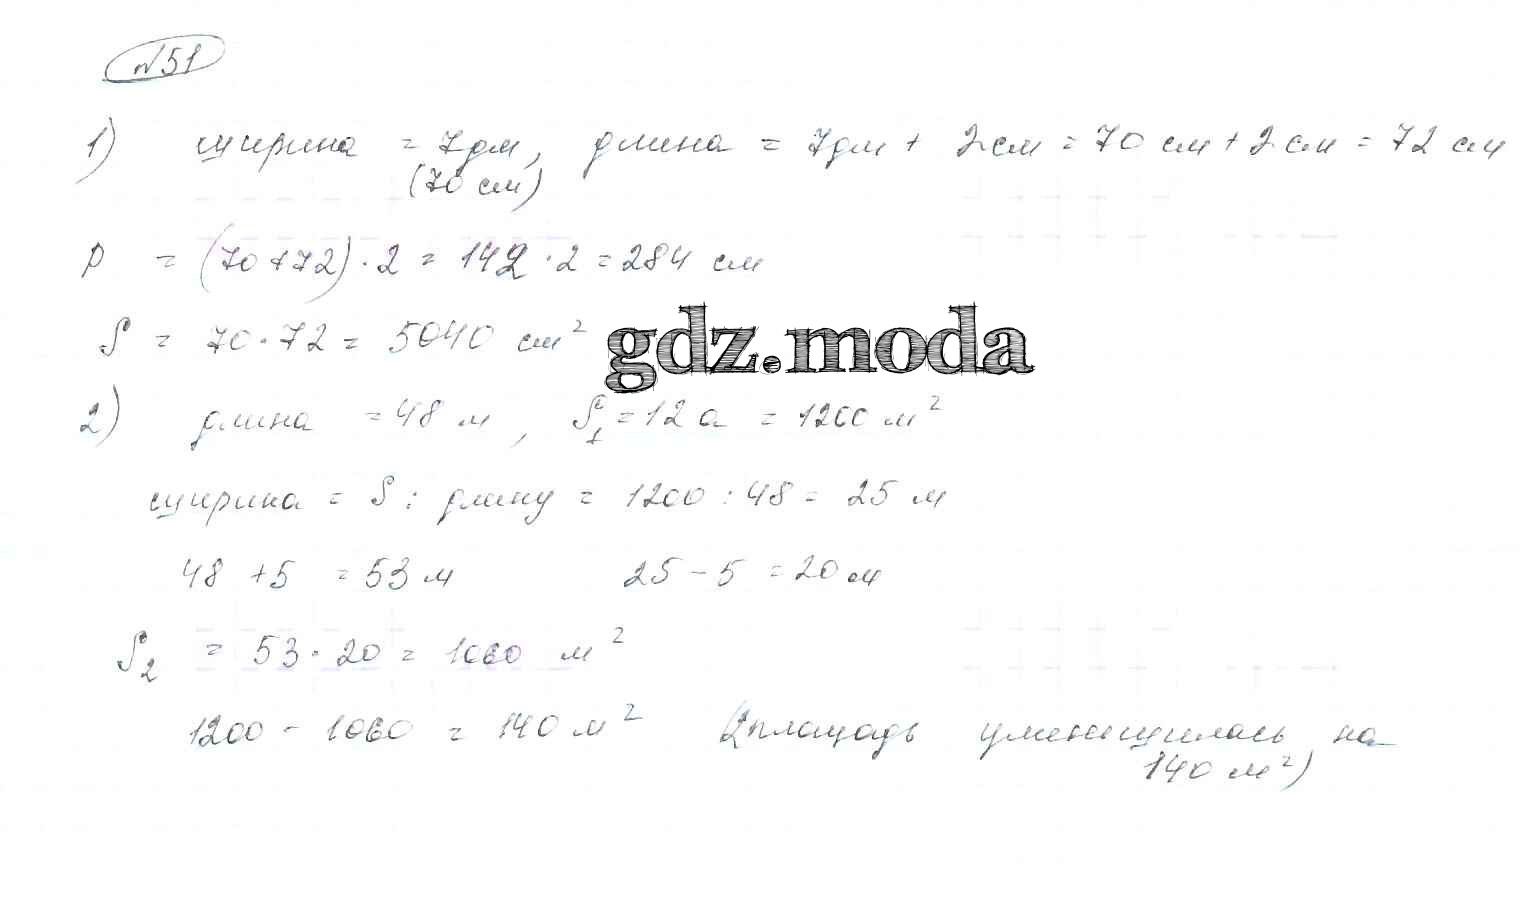 №51
1) ширина = 7дм, длина = 7дм + 2см = 70 см + 2 см = 72 см
(70 см)
P = (70+72)·2 = 142·2 = 284 см
S = 70·72 = 5040 см²
gdz.moda
2) длина = 48 м, S₁ = 12 а = 1200 м²
ширина = S : длину = 1200 : 48 = 25 м
48 + 5 = 53 м 25 - 5 = 20 м
S₂ = 53·20 = 1060 м²
1200 - 1060 = 140 м² (площадь уменьшилась на
140 м²)